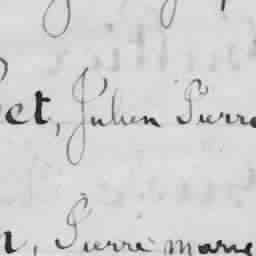 et, Julien Pierre
, Pierre marie